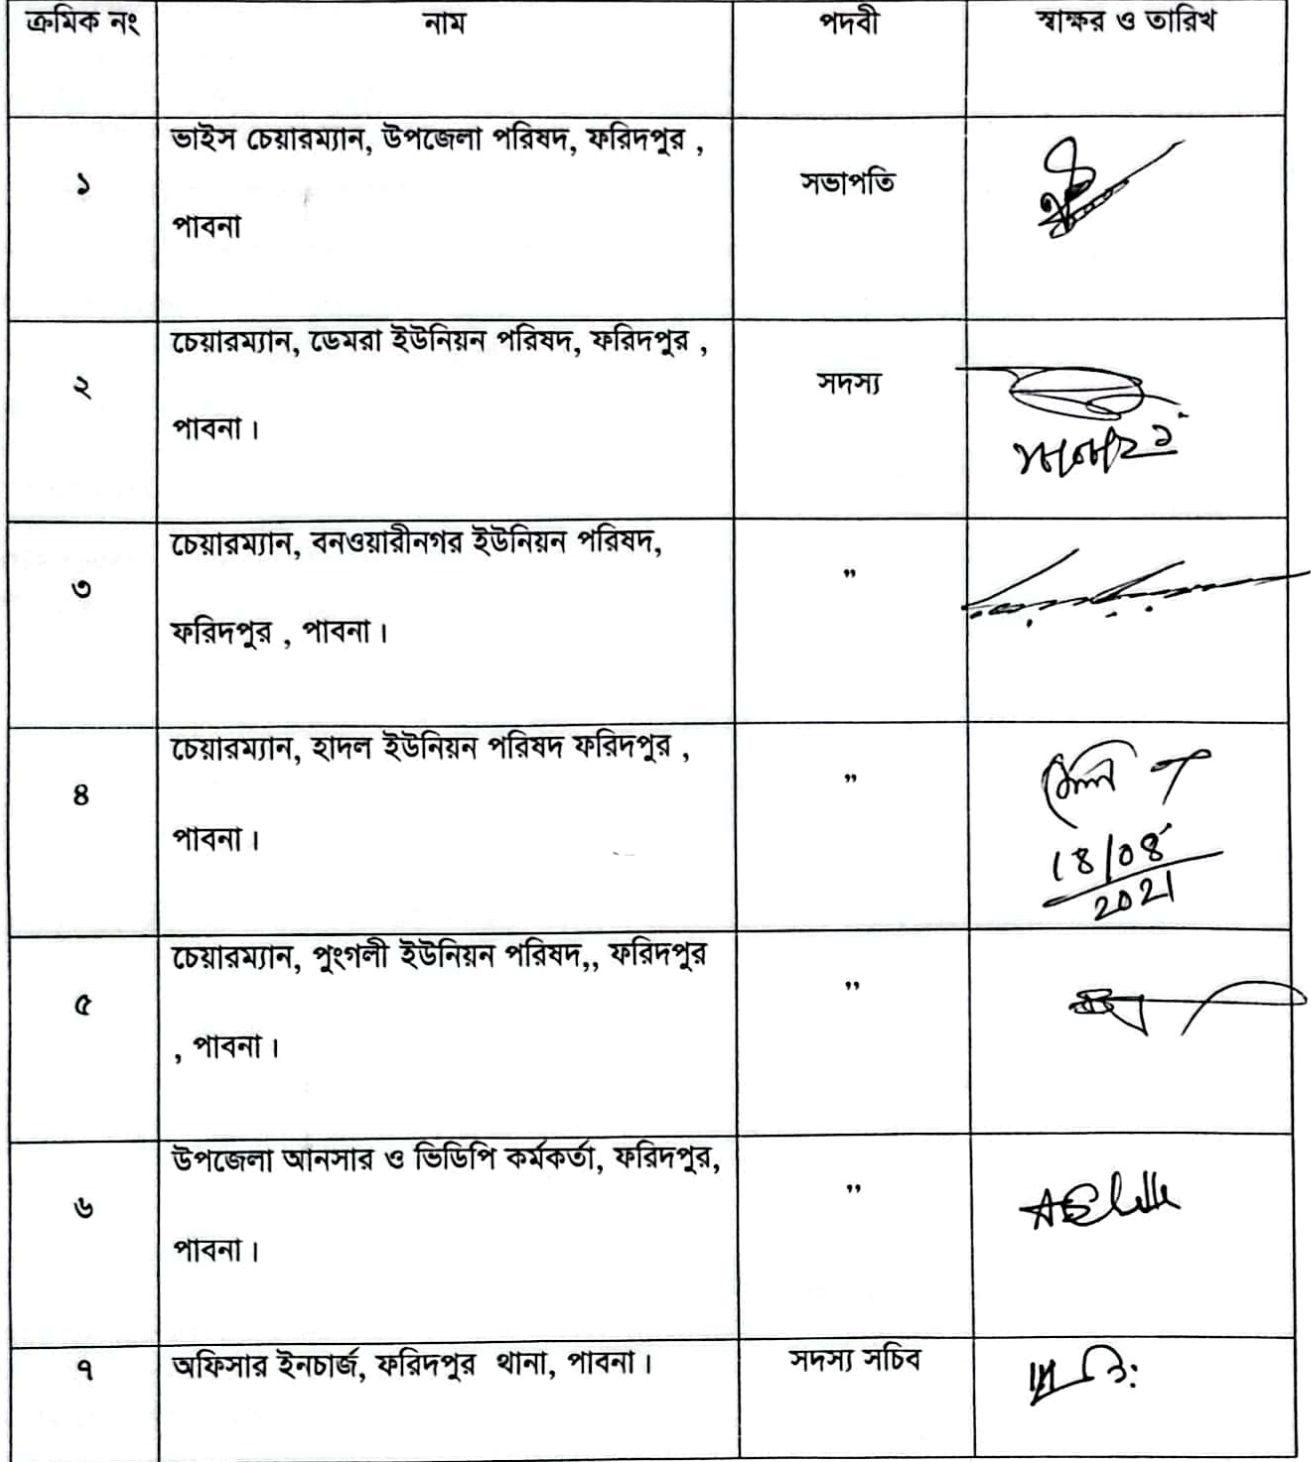 ক্রমিক নং নাম পদবী স্বাক্ষর ও তারিখ
ভাইস চেয়ারম্যান, উপজেলা পরিষদ, ফরিদপুর ,
১ সভাপতি
পাবনা
চেয়ারম্যান, ডেমরা ইউনিয়ন পরিষদ, ফরিদপুর ,
২ সদস্য
পাবনা।
চেয়ারম্যান, বনওয়ারীনগর ইউনিয়ন পরিষদ,
৩ ”
ফরিদপুর , পাবনা।
চেয়ারম্যান, হাদল ইউনিয়ন পরিষদ ফরিদপুর ,
৪ ”
পাবনা।
18/08
2021
চেয়ারম্যান, পুংগলী ইউনিয়ন পরিষদ,, ফরিদপুর
৫ ”
, পাবনা।
উপজেলা আনসার ও ভিডিপি কর্মকর্তা, ফরিদপুর,
৬ ”
পাবনা।
৭ অফিসার ইনচার্জ, ফরিদপুর থানা, পাবনা। সদস্য সচিব